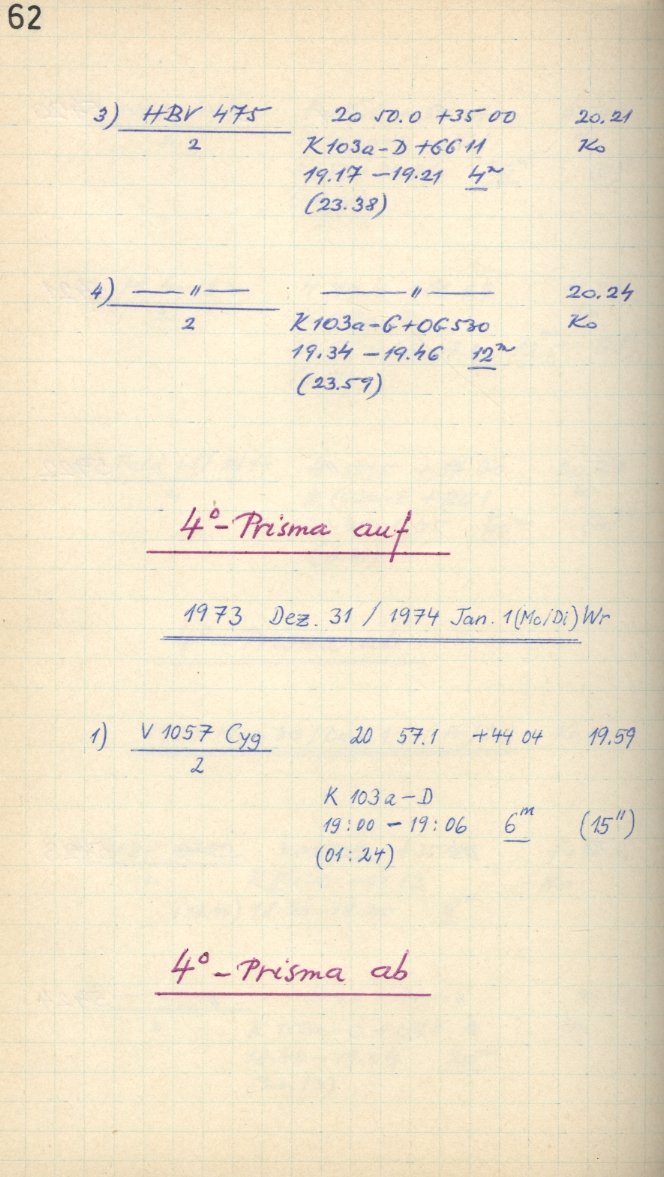 62
3) HBV 475 20 50.0 +35 00 20.21
2 K103a-D +GG 11 Ko
19.17 – 19.21 4m
(23.38)
4) —— " —— ——— " ——— 20.24
2 K103a-G+OG530 Ko
19.34 – 19.46 12m
(23.59)
4°-Prisma auf
1973 Dez. 31 / 1974 Jan. 1 (Mo/Di) Wr
1) V 1057 Cyg 20 57.1 +44 04 19.59
2
K 103a-D
19:00 – 19:06 6m (15")
(01:24)
4°-Prisma ab